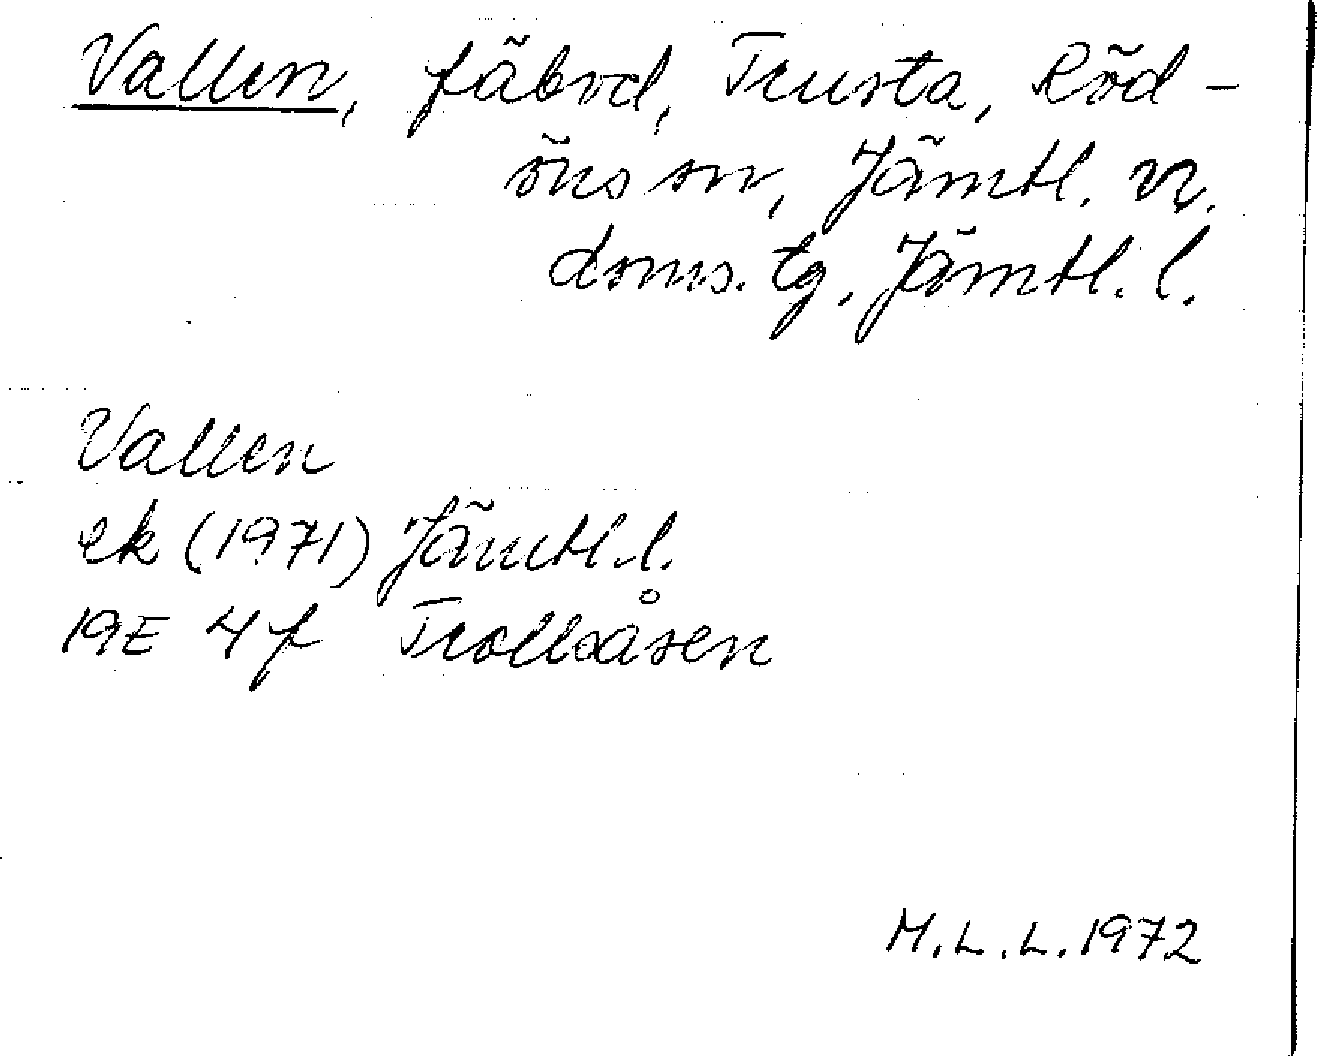 Vallen, fäbod, Trusta, Röd-
öns sn, Jämtl. v.
doms. tg, Jämtl. l.
Vallen
ek (1971) Jämtl. l.
19E 4f Trollsåsen
M.L.L. 1972